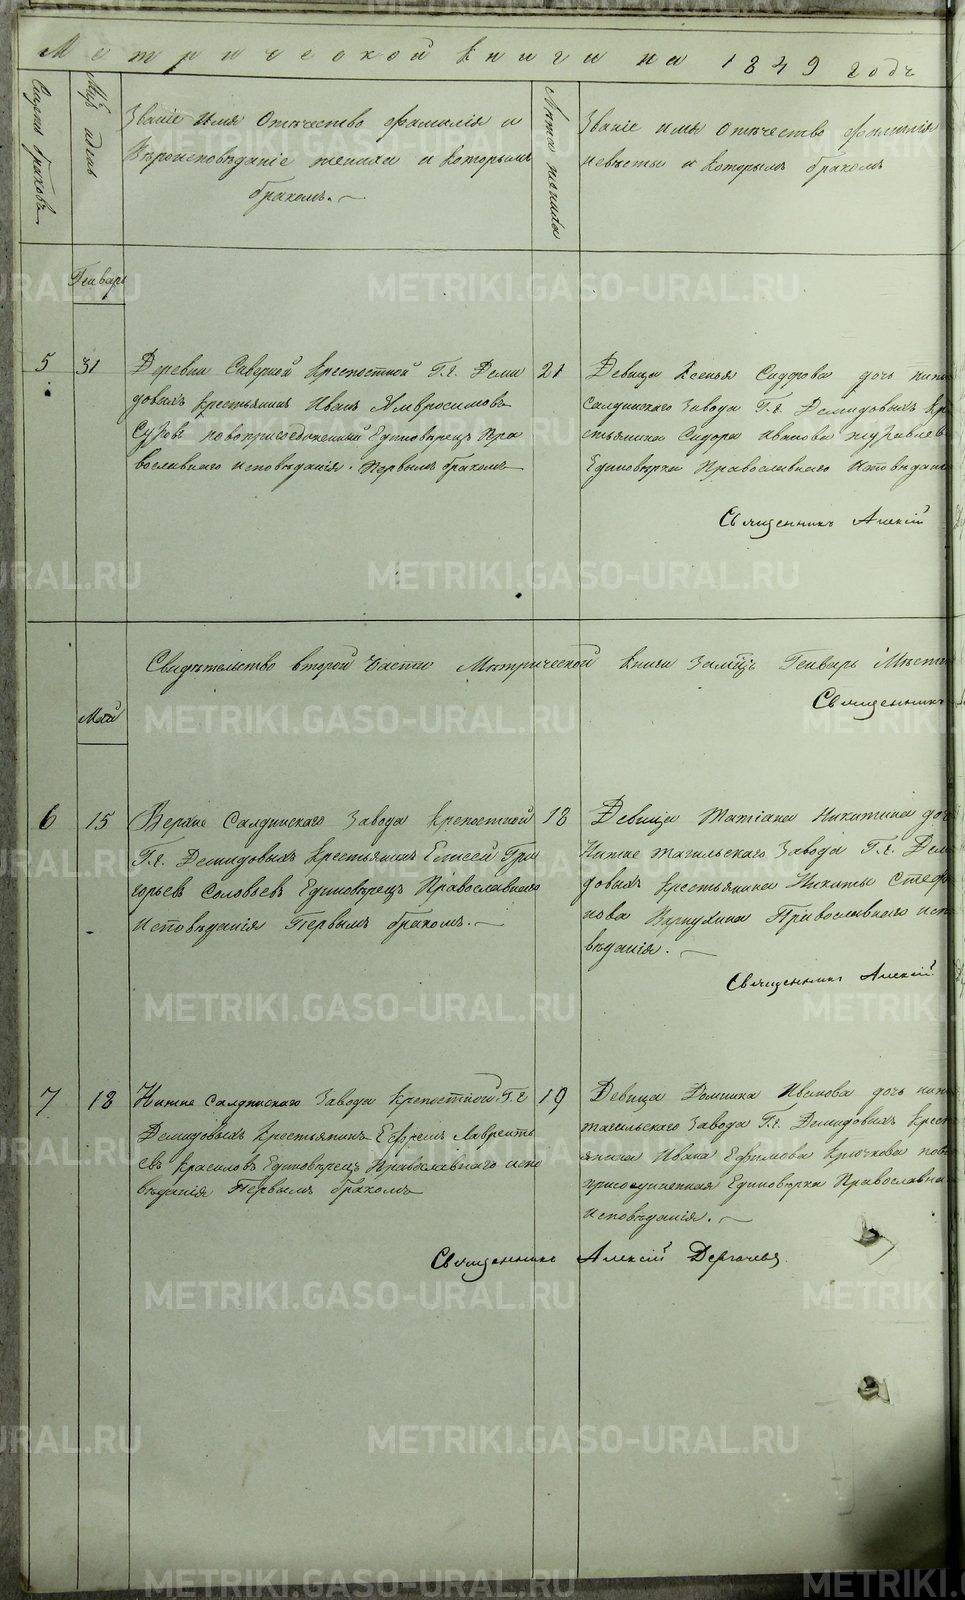 Метрической книги на 1849 годъ
Счетъ браковъ
Мц̃ъ и день
Званіе имя Отчество фамилія и
Вѣроисповѣданіе жениха и которымъ
бракомъ.
Лѣта жениха
Званіе имя Отчество фамилія
невѣсты и которымъ бракомъ
Генварь
5
31
Деревни Северной крепостной Г.г. Деми
довыхъ крестьянинъ Иванъ Амвросимовъ
новоприсоединенный Единовѣрецъ Пра
вославнаго исповѣданія. Первымъ бракомъ
21
Девица Ксенья Сидорова дочь нижне
салдинскаго Завода Г.г. Демидовыхъ Кре
стьянина Сидора Иванова Журавлев
Единовѣрка Православнаго Исповѣдані
Священникъ Алексій
Свидѣтельство второй части Мѣтрической книги Генварь Мѣсяц
Священникъ
Май
6
15
Верхне Салдинскаго Завода крепостной
Г.г. Демидовыхъ крестьянинъ Елисей Гри
горьевъ Соловьевъ Единовѣрецъ Православнаго
Исповѣданія Первымъ бракомъ.
18
Девица Татіана Никитина доч
Нижне тагильскаго Завода Г.г. Дем
довыхъ крестьянина Никиты Стефа
нова Православнаго испо
вѣданія.
Священникъ Алексій
7
18
Нижне Салдинскаго Завода крепостной Г.г
Демидовыхъ крестьянинъ Ефремъ Лавренть
евъ Красиловъ Единовѣрецъ Православнаго испо
вѣданія Первымъ бракомъ
19
Девица Домника Иванова дочь нижне
тагильскаго Завода Г.г. Демидовыхъ Крест
янина Ивана Ефимова Крючкова ново
присоединенная Единовѣрка Православна
Исповѣданія.
Священникъ Алексій Дергачевъ
METRIKI.GASO-URAL.RU